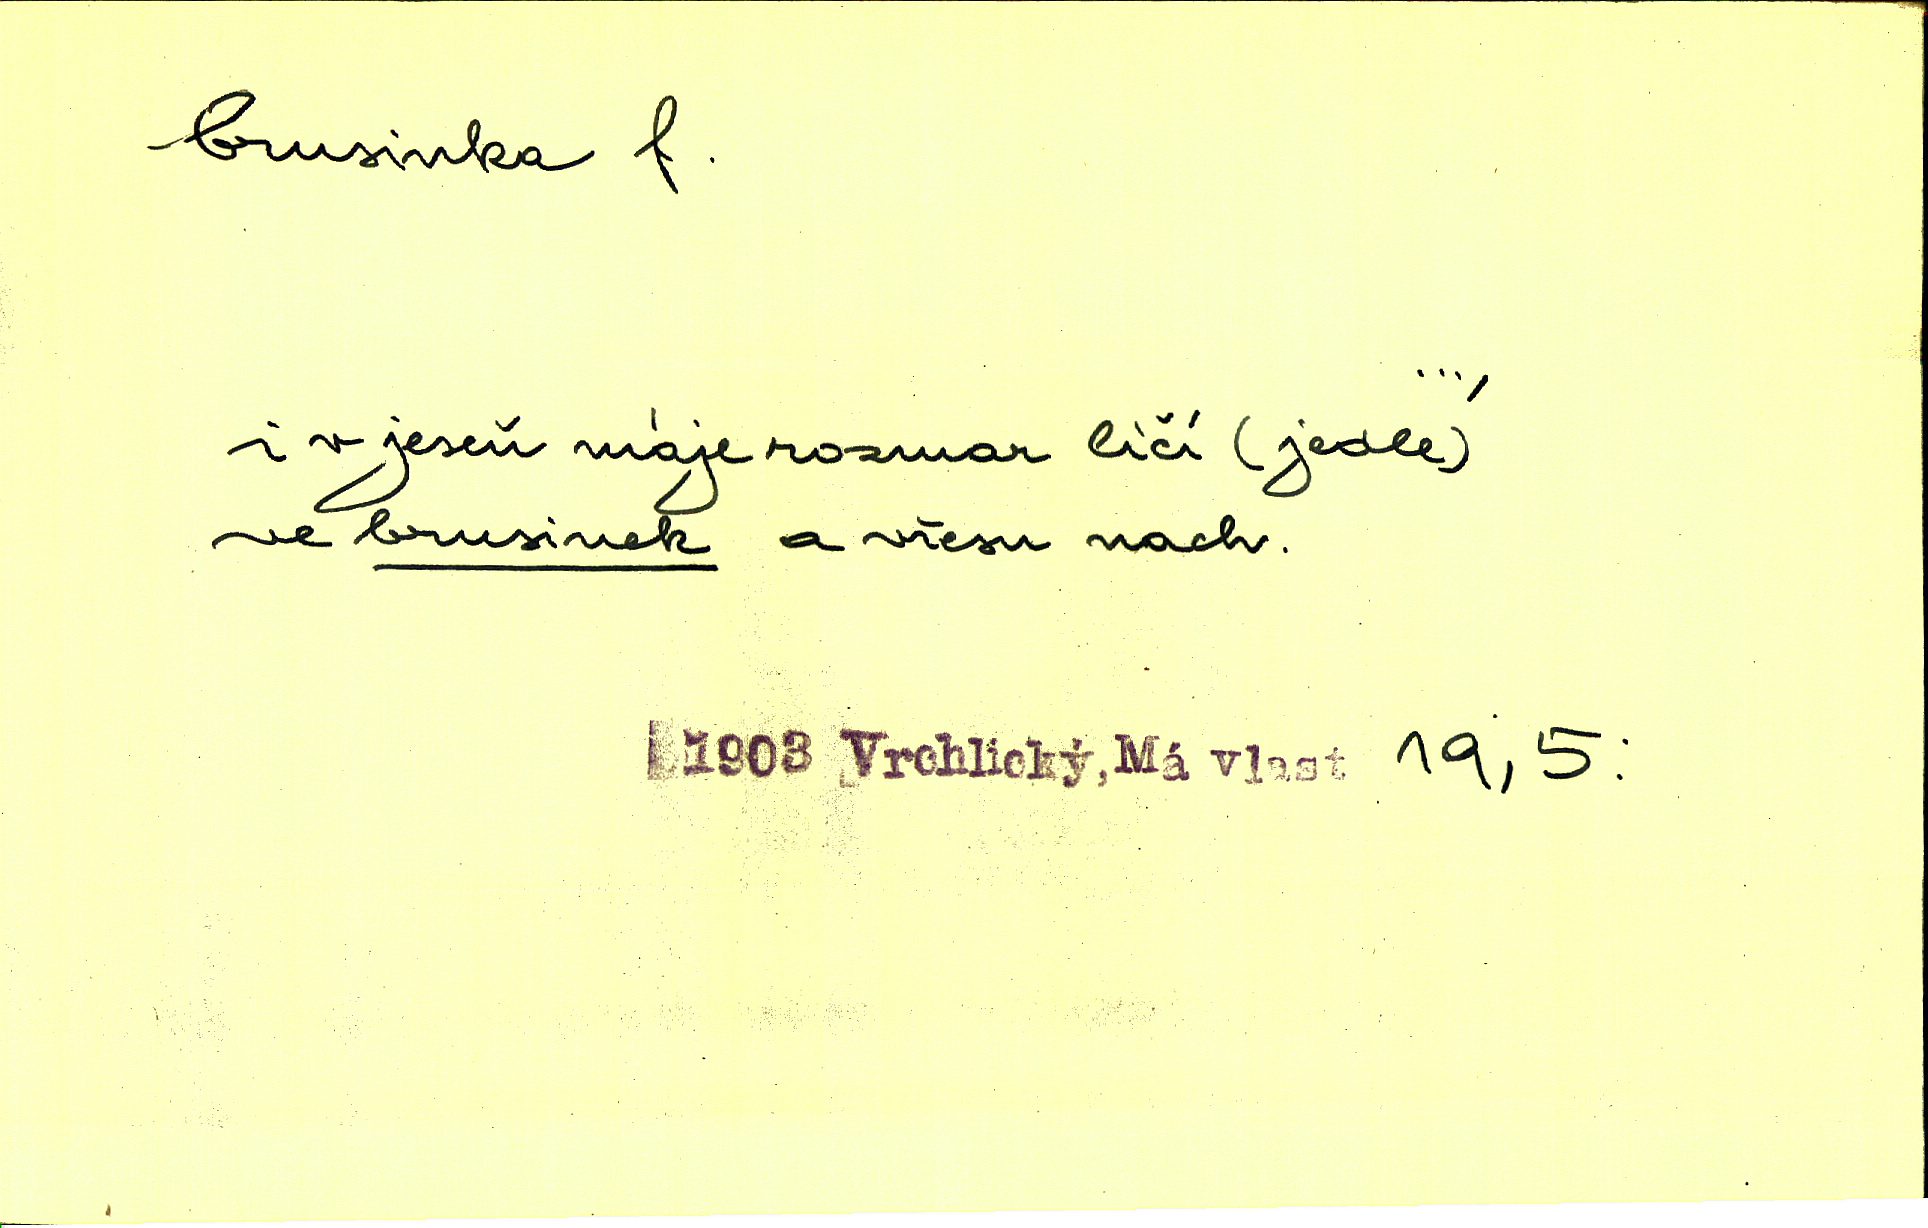 brusinka f.
...,
i v jeseň máje rozmar líčí (jedle)
ve brusinek a vřesu nach.
1903 Vrchlický, Má vlast 19, 5: